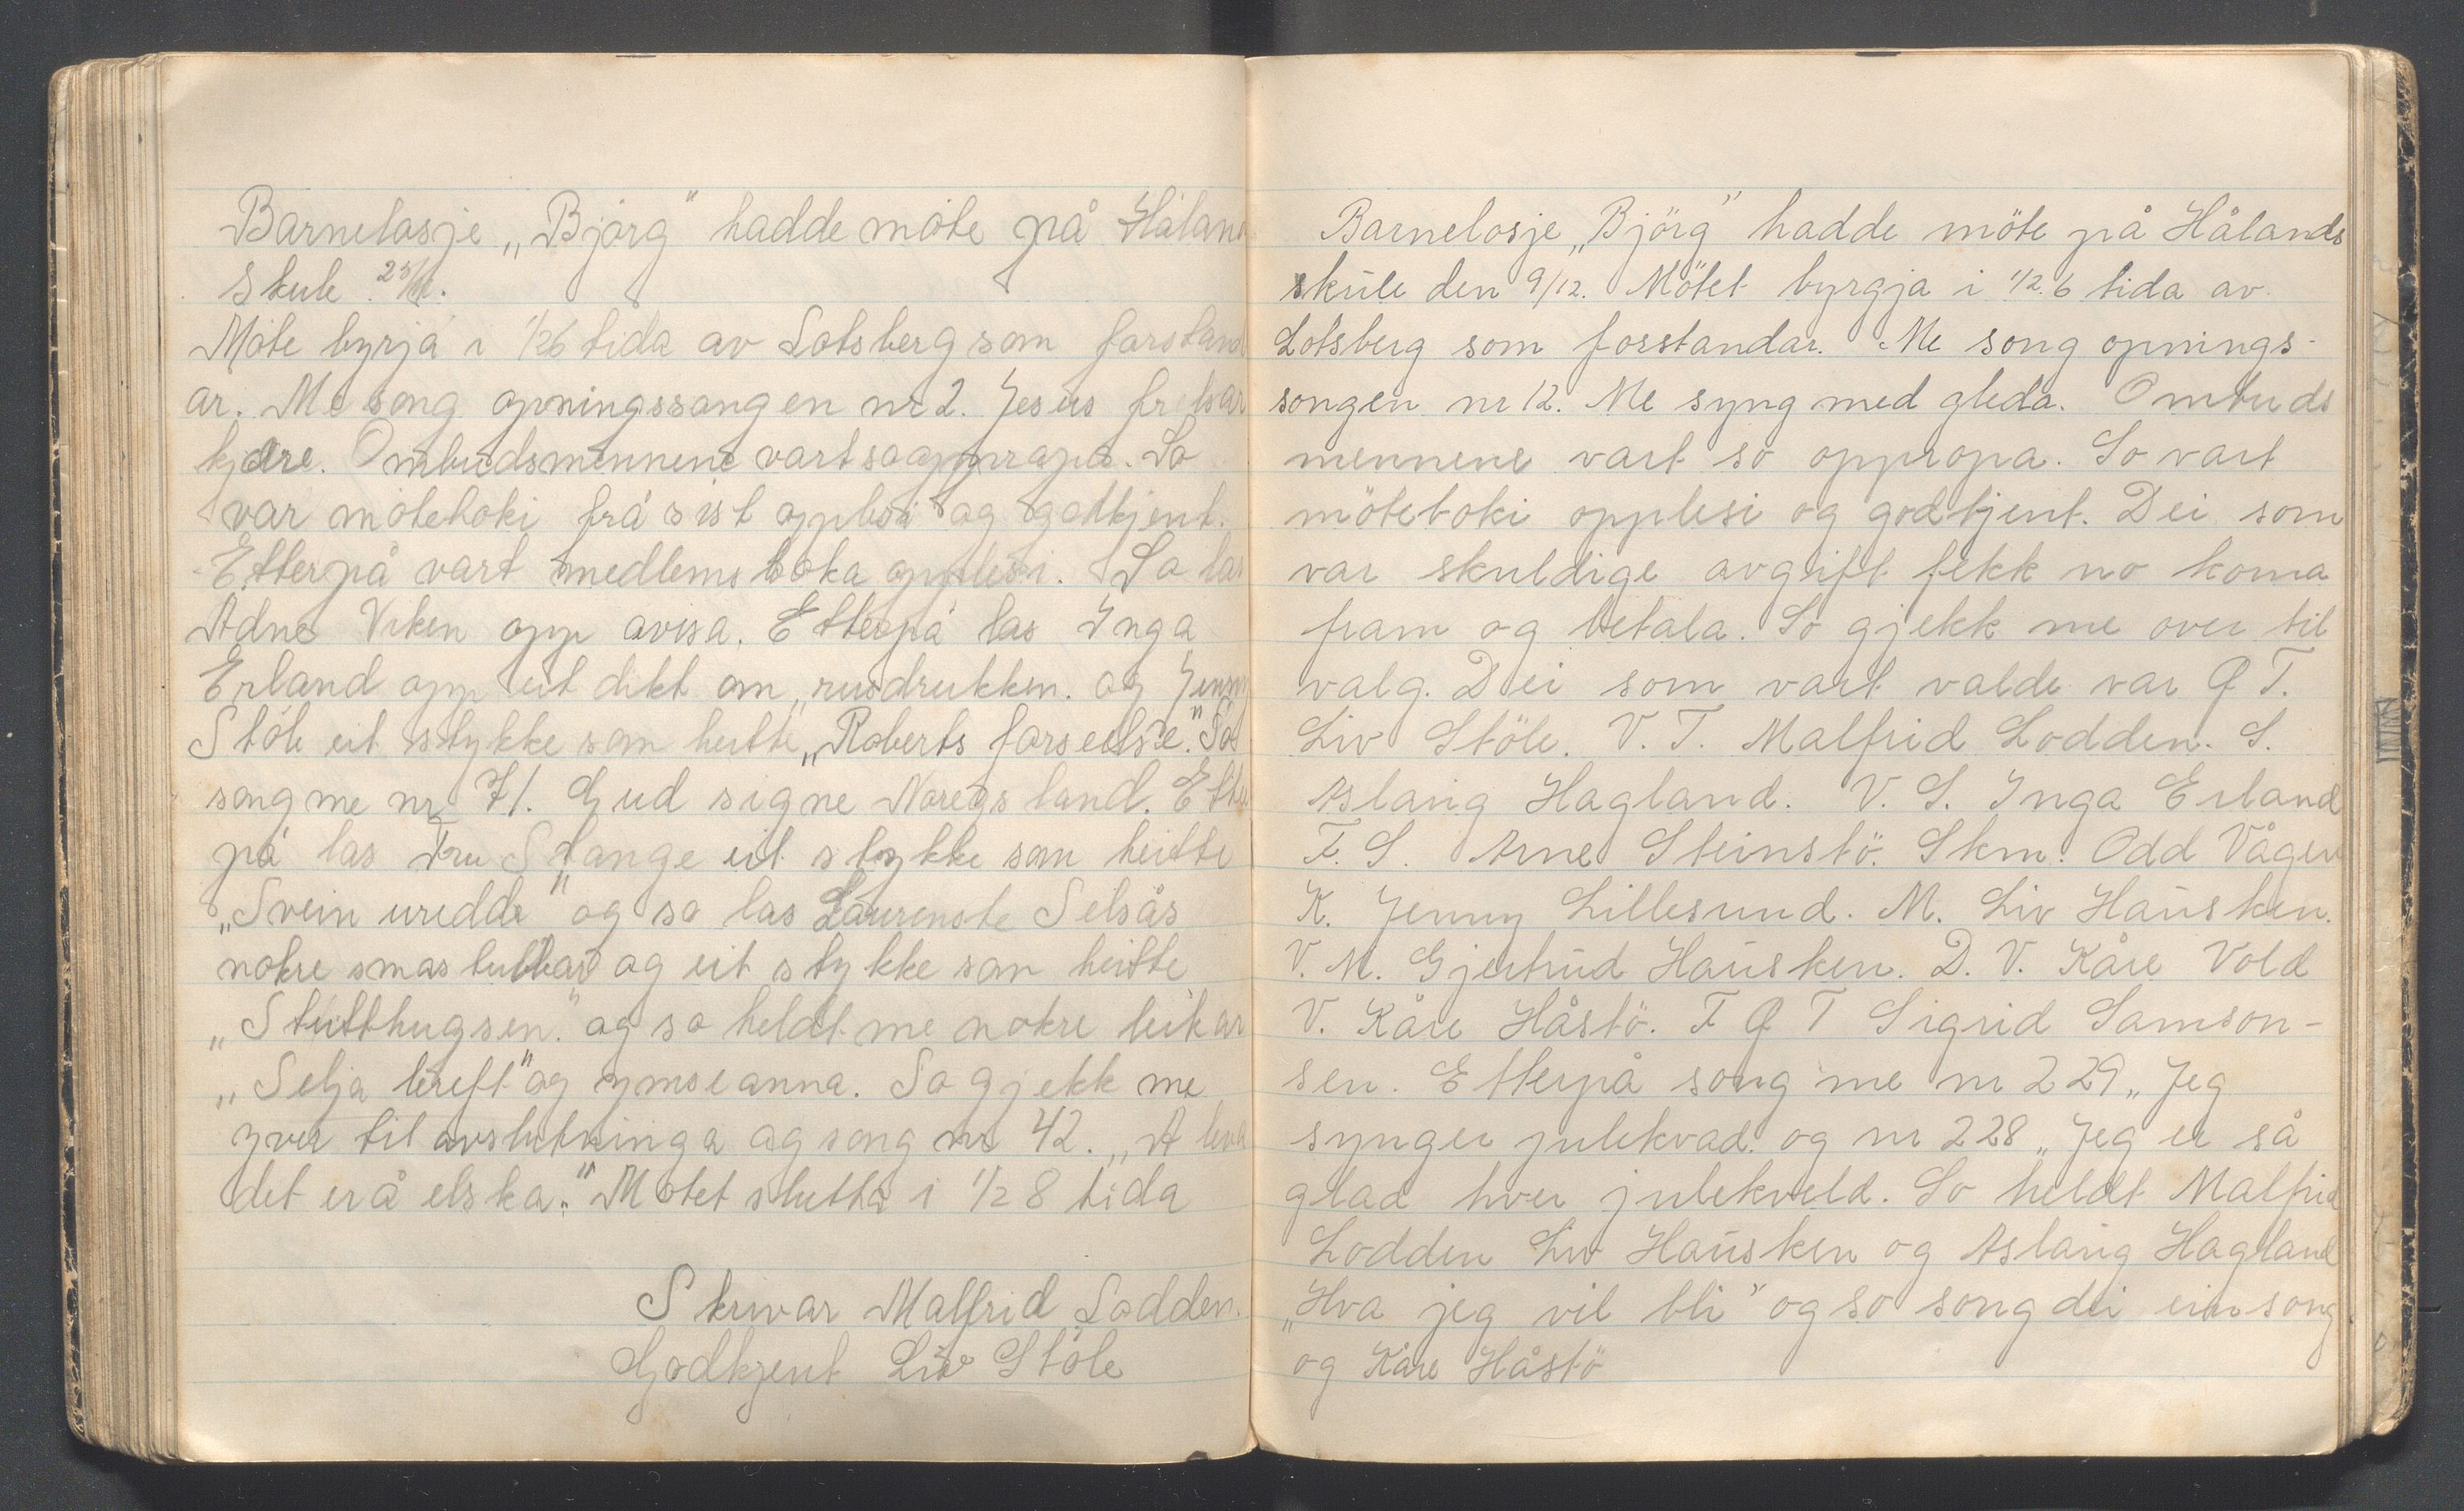 Barnelosje „Björg" hadde möte på Håland
Skule 25/11.
Möte byrja i 1/26 tida av Lotsberg som forstand
ar. Me song opningssongen nr 2. Jesus frelsar
kjære. Ombudsmennene vart so oppropa. So
var möteboki frå sist opplesi og godkjent.
Etterpå vart medlemsboka opplesi. So las
Adne Viken opp avisa. Etterpå las Inga
Erland opp eit dikt om „rusdrukken. og Jenny
Stöle eit stykke som heitte „Roberts forseelse." So
song me nr 71. Gud signe Noregs land. Etter
på las Fru Stange eit stykke som heitte
„Svein uredde" og so las Laurenste Selsås
nokre smastubbar og eit stykke som heitte
„Stutthugsen." og so heldt me nokre leikar
„Selja lereft" og ymse anna. So gjekk me
yver til avslutninga og song nr 42. „A leva
det er å elska." Motet slutta i 1/2 8 tida
Skrivar Malfrid Lodden.
Godkjent Liv Stöle
Barnelosje „Björg" hadde möte på Hålands
skule den 9/12. Mötet byrgja i 1/2.6 tida av
Lotsberg som forstandar. Me song opnings-
songen nr 12. Me syng med gleda. Ombuds
mennene vart so oppropa. So vart
möteboki opplesi og godkjent. Dei som
var skuldige avgift fekk no koma
fram og betala. So gjekk me over til
valg. Dei som vart valde var Q T.
Liv Stöle. V. T. Malfrid Lodden. S.
Aslaug Hagland. V. S. Inga Erland
F. S. Arne Steinstö. Skm. Odd Vågen
K. Jenny Lillesund. M. Liv Hausken.
V. M. Gjertrud Hausken. D. V. Kåre Vold
V. Kåre Håstö. F Q T Sigrid Samson-
sen. Etterpå song me nr 229 „Jeg
synger julekvad. og nr 228 „Jeg er så
glad hver julekveld. So heldt Malfrid
Lodden Liv Hausken og Aslaug Hagland
„Hva jeg vil bli" og so song dei ein song
og Kåre Håstö